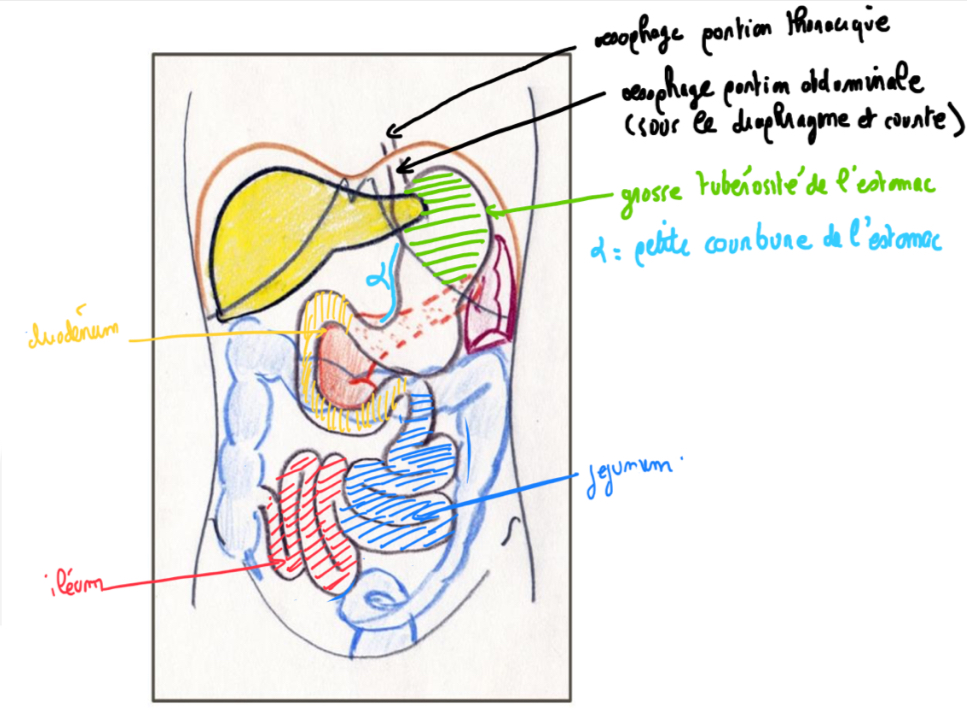 œsophage portion thoracique
œsophage portion abdominale
(sous le diaphragme et courte)
grosse tubérosité de l'estomac
α = petite courbure de l'estomac
α
duodénum
jejunum.
iléum